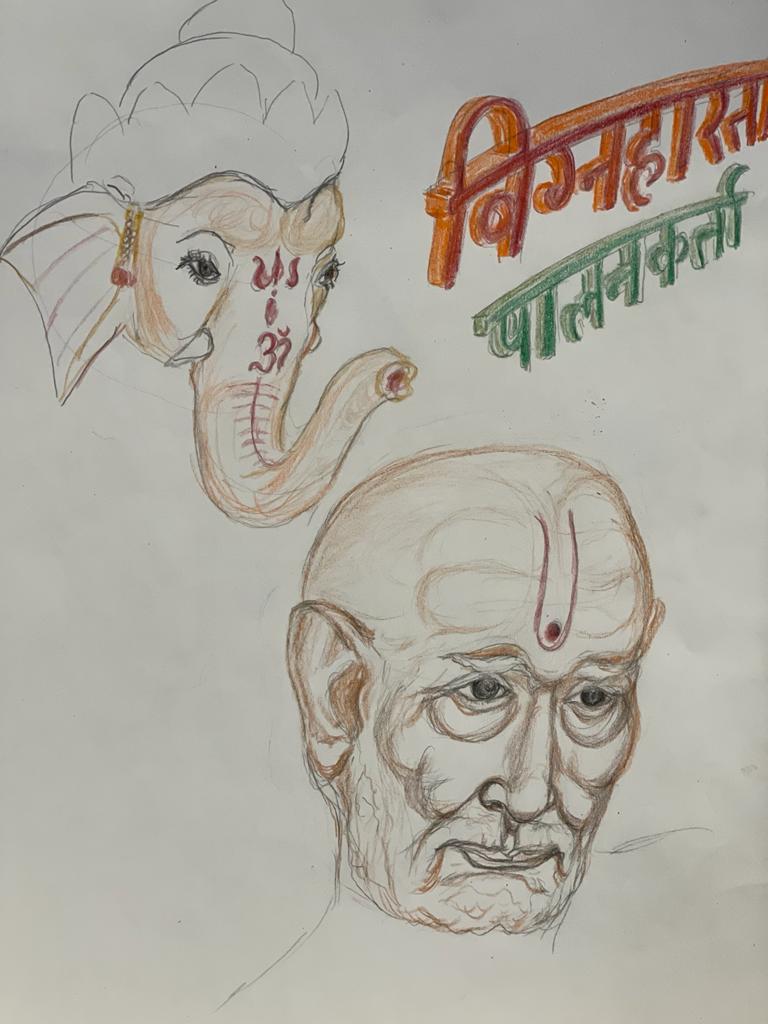 विग्नहारता
पालनकर्ता
ॐ